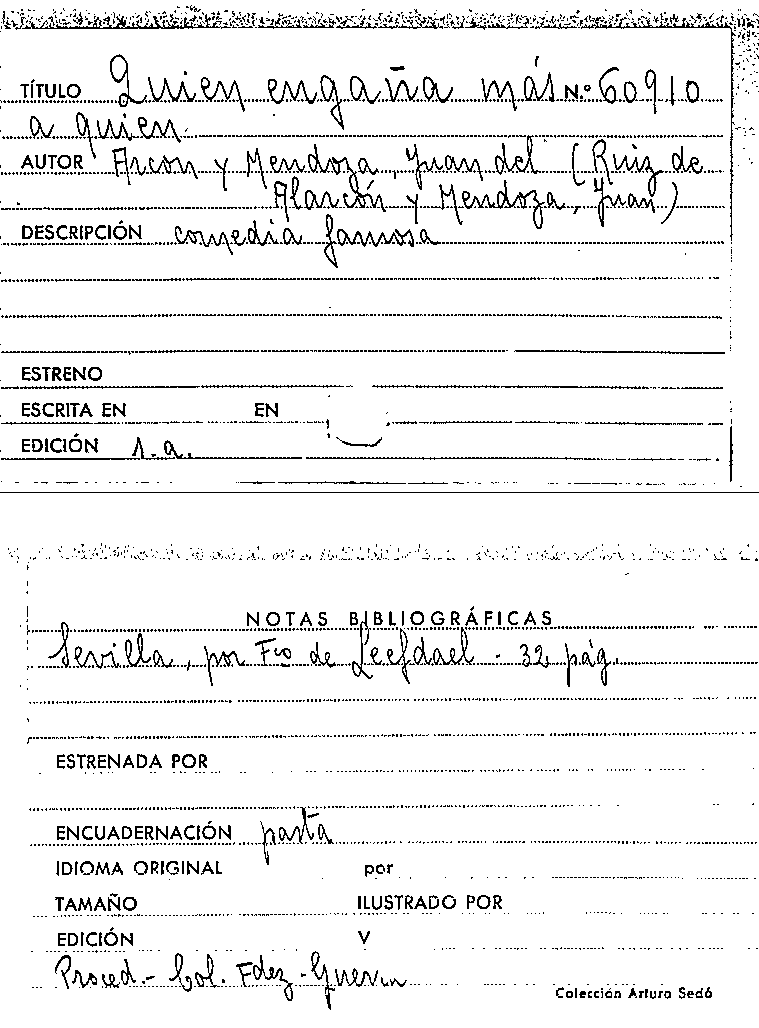 TÍTULO Quien engaña más N.º 60910
a quien.
AUTOR Arcon y Mendoza, Juan del (Ruiz de
Alarcón y Mendoza, Juan)
DESCRIPCIÓN comedia famosa
ESTRENO
ESCRITA EN EN
EDICIÓN s.a.
NOTAS BIBLIOGRÁFICAS
Sevilla, por Fco de Leefdael - 32 pág.
ESTRENADA POR
ENCUADERNACIÓN pasta
IDIOMA ORIGINAL por
TAMAÑO ILUSTRADO POR
EDICIÓN V
Proced.- Col. Fdez-Guerra
Colección Arturo Sedó